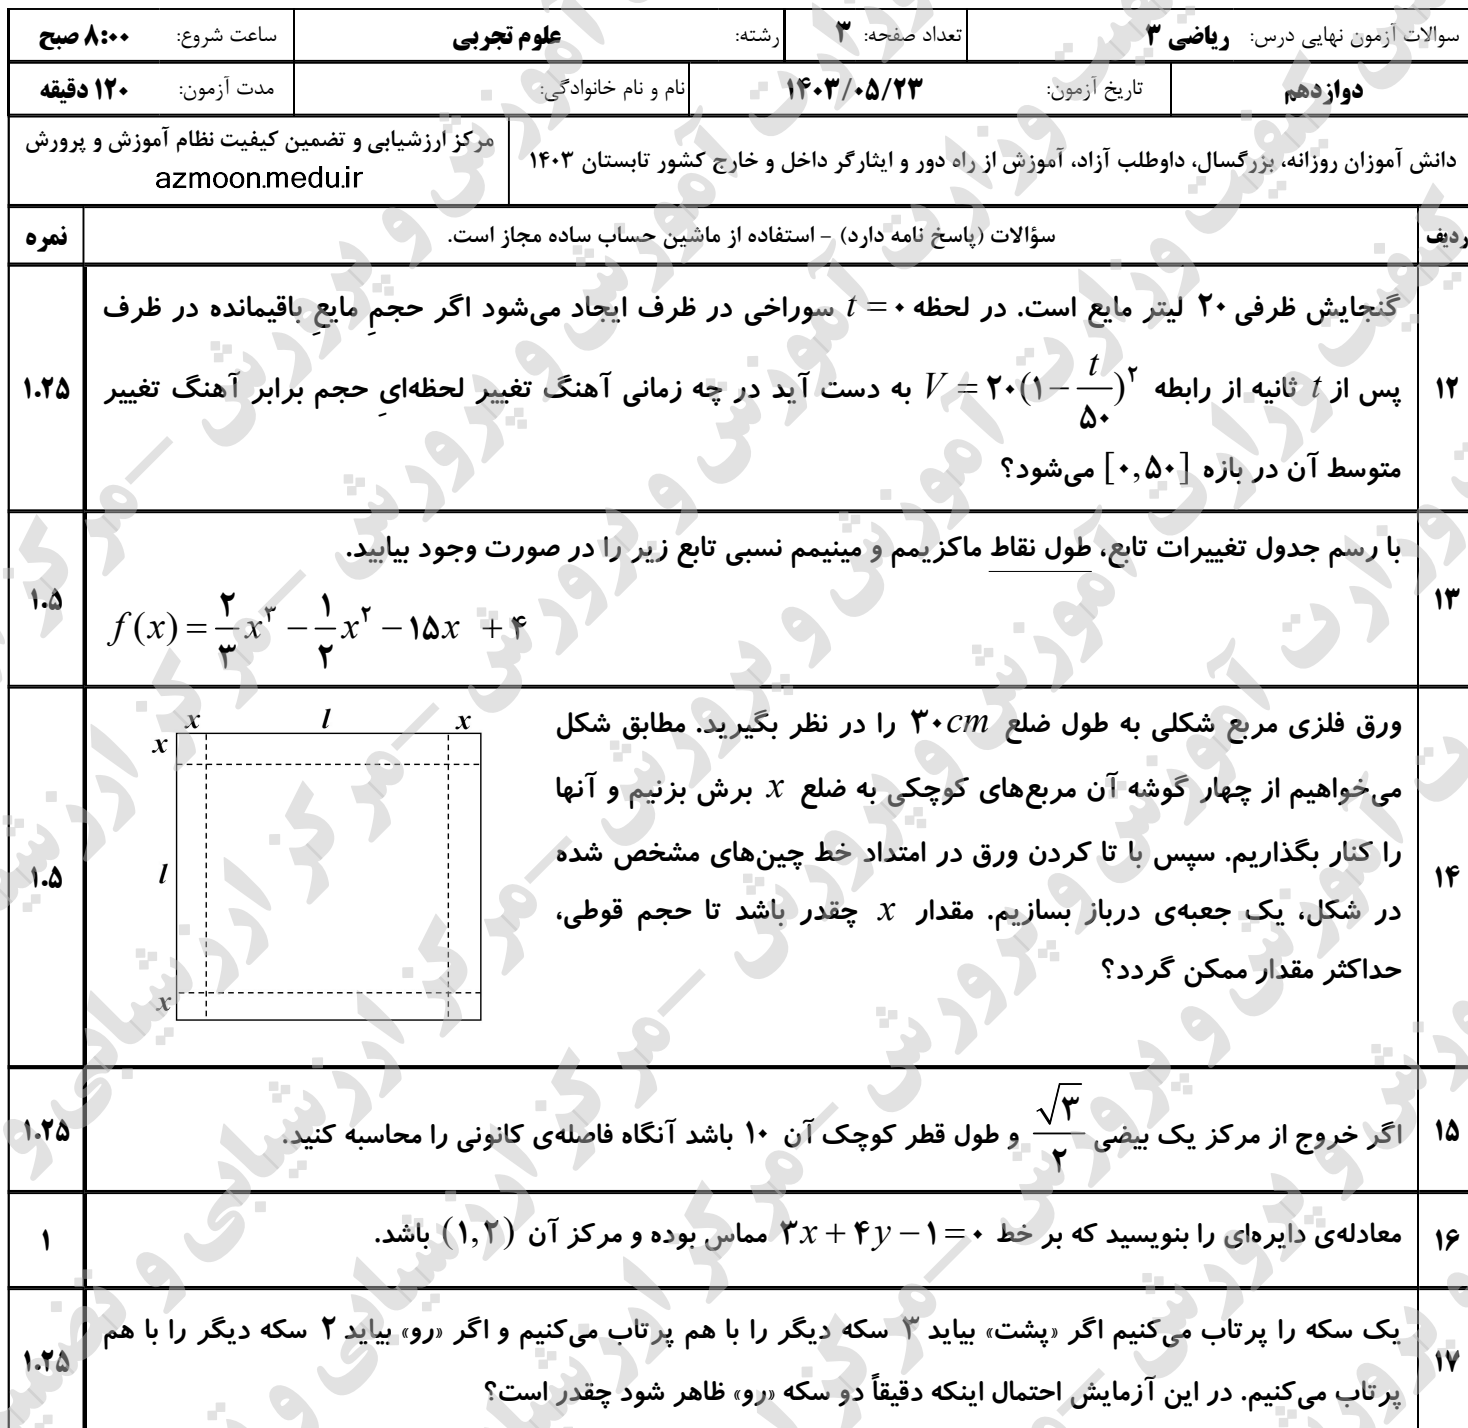 سوالات آزمون نهایی درس: ریاضی ۳ تعداد صفحه: ۳ رشته: علوم تجربی ساعت شروع: ۸:۰۰ صبح
دوازدهم تاریخ آزمون: ۱۴۰۳/۰۵/۲۳ نام و نام خانوادگی: مدت آزمون: ۱۲۰ دقیقه
دانش آموزان روزانه، بزرگسال، داوطلب آزاد، آموزش از راه دور و ایثارگر داخل و خارج کشور تابستان ۱۴۰۳
مرکز ارزشیابی و تضمین کیفیت نظام آموزش و پرورش
azmoon.medu.ir
ردیف سؤالات (پاسخ نامه دارد) - استفاده از ماشین حساب ساده مجاز است. نمره
۱۲
گنجایش ظرفی ۲۰ لیتر مایع است. در لحظه t = ۰ سوراخی در ظرف ایجاد می‌شود اگر حجمِ مایعِ باقیمانده در ظرف
پس از t ثانیه از رابطه V = ۲۰(۱ − t/۵۰)^۲ به دست آید در چه زمانی آهنگ تغییر لحظه‌ایِ حجم برابر آهنگ تغییر
متوسط آن در بازه [۰,۵۰] می‌شود؟
۱.۲۵
۱۳
با رسم جدول تغییرات تابع، طول نقاط ماکزیمم و مینیمم نسبی تابع زیر را در صورت وجود بیابید.
f(x) = ۲/۳ x^۳ − ۱/۲ x^۲ − ۱۵x + ۴
۱.۵
۱۴
ورق فلزی مربع شکلی به طول ضلع ۳۰cm را در نظر بگیرید. مطابق شکل
می‌خواهیم از چهار گوشه آن مربع‌های کوچکی به ضلع x برش بزنیم و آنها
را کنار بگذاریم. سپس با تا کردن ورق در امتداد خط چین‌های مشخص شده
در شکل، یک جعبه‌ی درباز بسازیم. مقدار x چقدر باشد تا حجم قوطی،
حداکثر مقدار ممکن گردد؟
x l x
x
l
x
۱.۵
۱۵
اگر خروج از مرکز یک بیضی √۳/۲ و طول قطر کوچک آن ۱۰ باشد آنگاه فاصله‌ی کانونی را محاسبه کنید.
۱.۲۵
۱۶
معادله‌ی دایره‌ای را بنویسید که بر خط ۳x + ۴y − ۱ = ۰ مماس بوده و مرکز آن (۱,۲) باشد.
۱
۱۷
یک سکه را پرتاب می‌کنیم اگر «پشت» بیاید ۳ سکه دیگر را با هم پرتاب می‌کنیم و اگر «رو» بیاید ۲ سکه دیگر را با هم
پرتاب می‌کنیم. در این آزمایش احتمال اینکه دقیقاً دو سکه «رو» ظاهر شود چقدر است؟
۱.۲۵